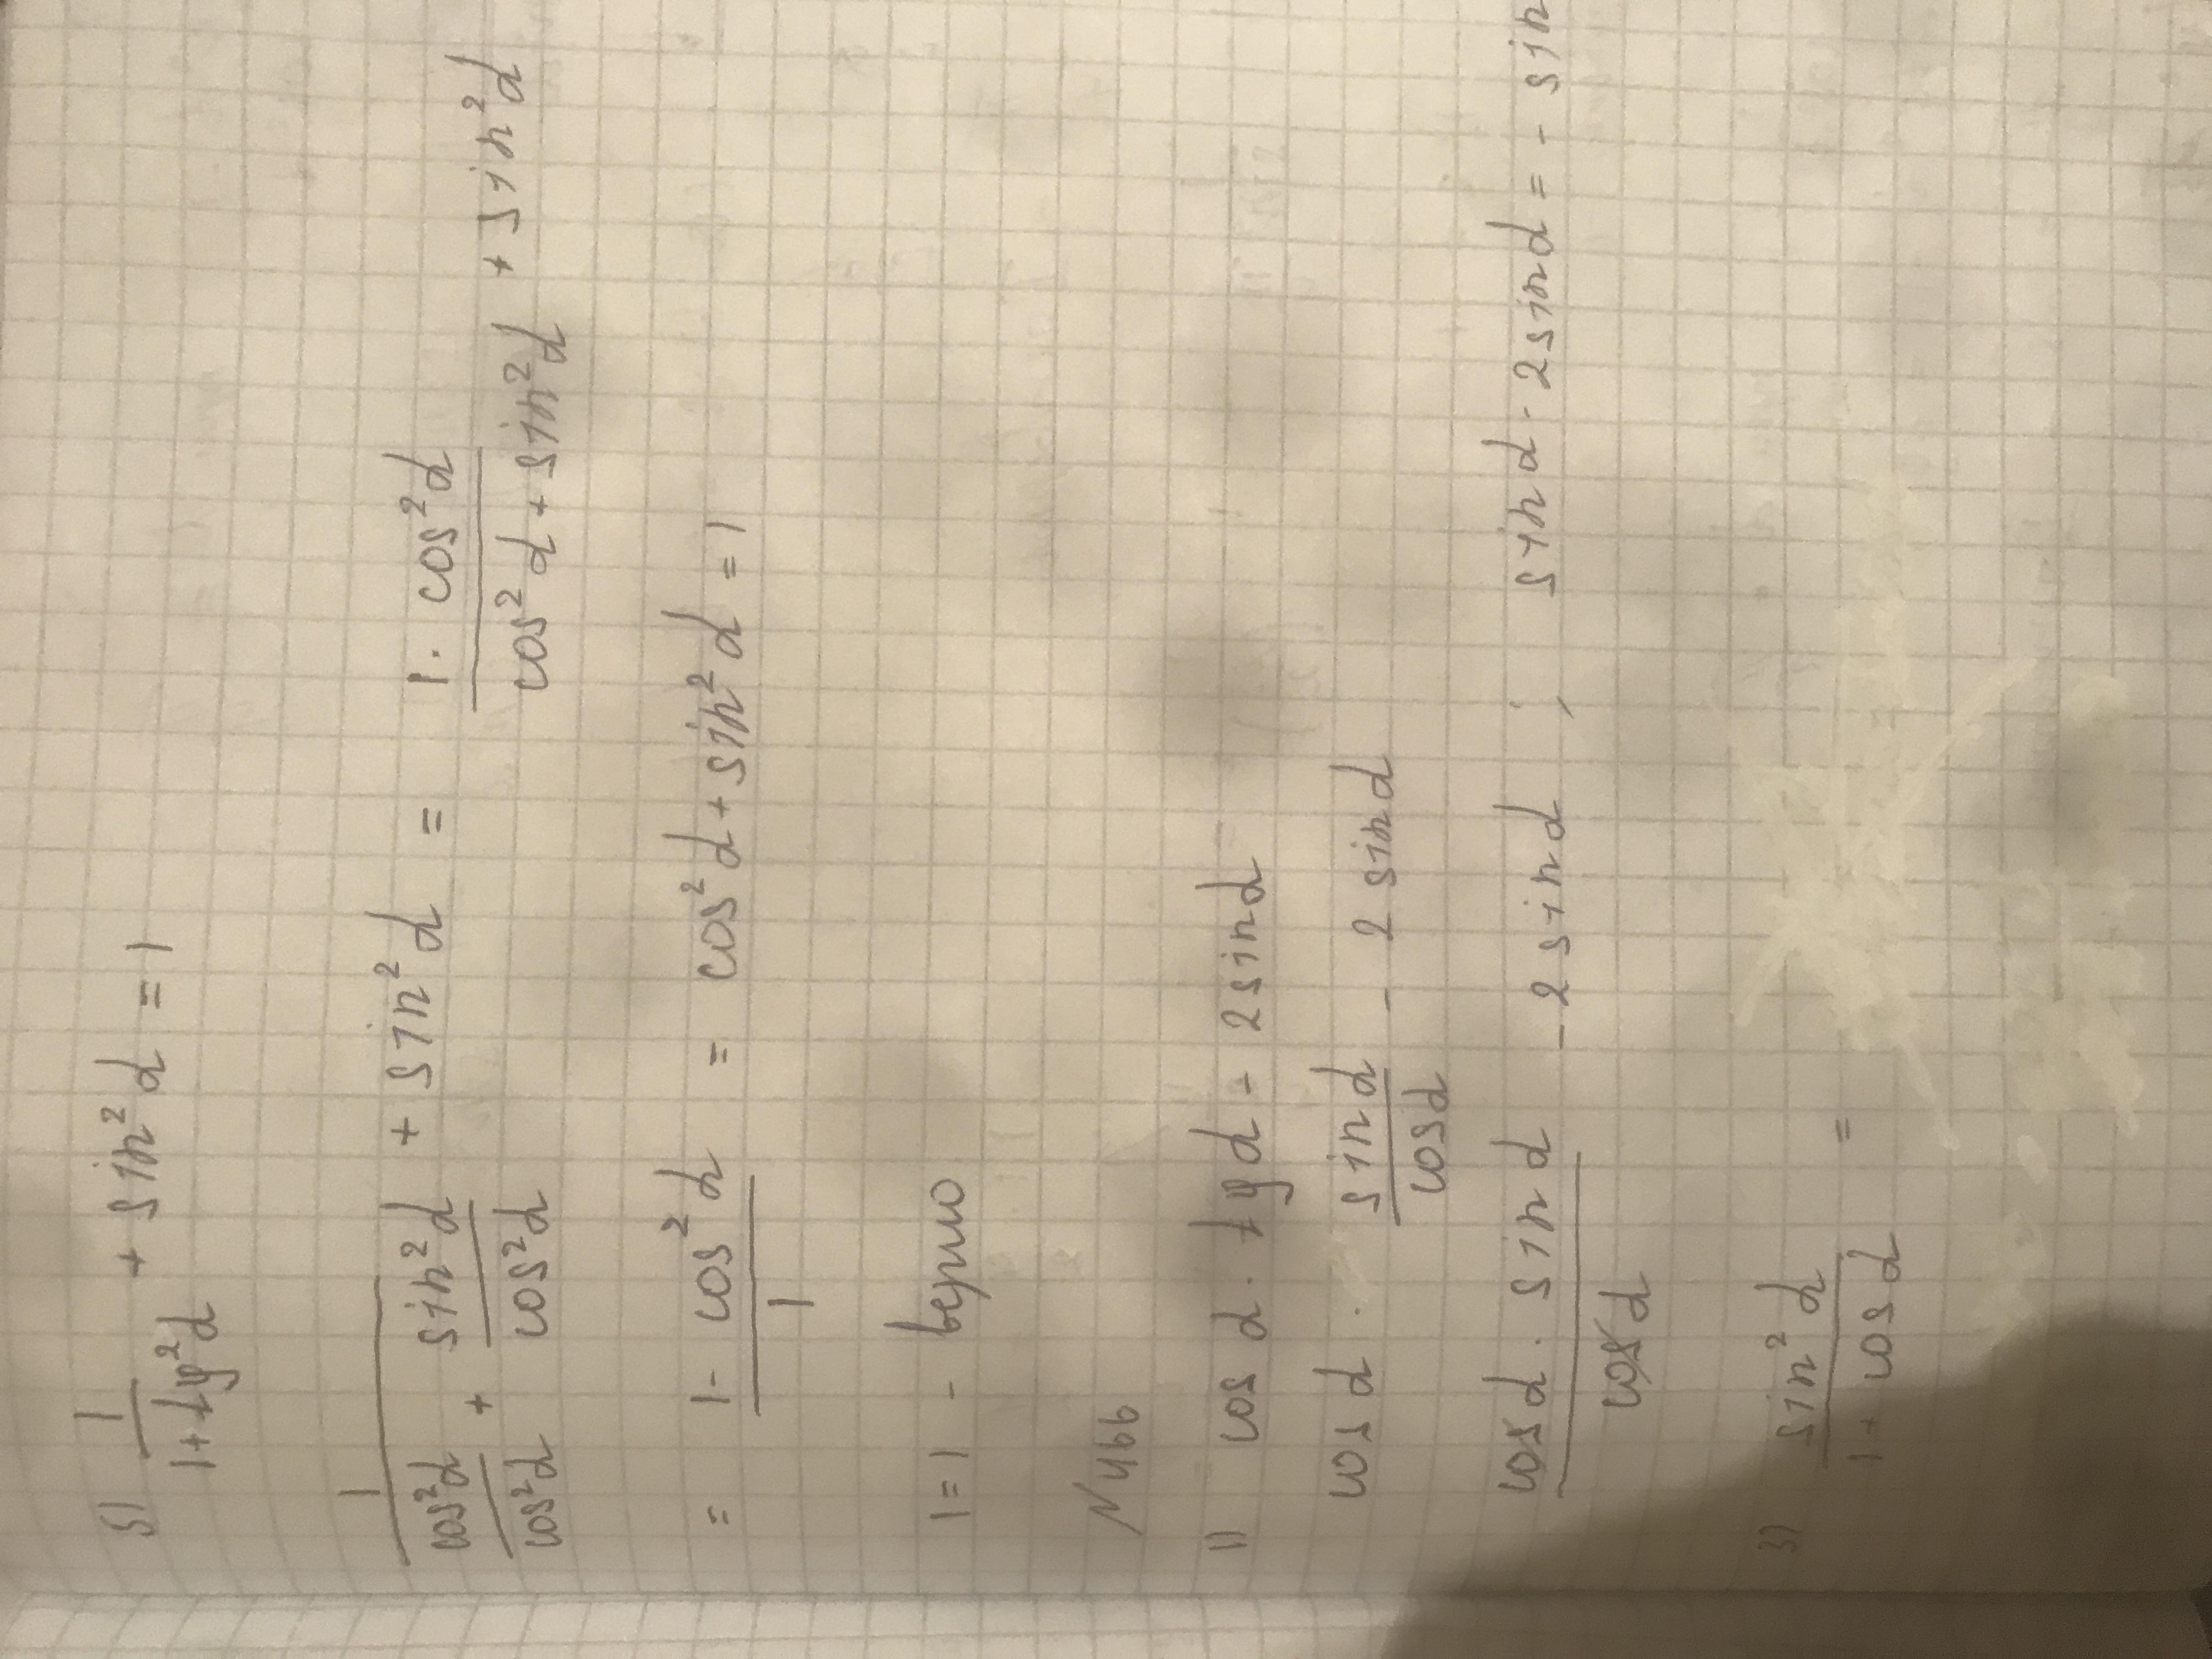 5) 1/(1+tg²α) + sin²α = 1
1/(cos²α/cos²α + sin²α/cos²α) + sin²α = (1·cos²α)/(cos²α+sin²α) + sin²α
= (1-cos²α)/1 = cos²α+sin²α=1
1=1 - верно
N466
1) cosα·tgα-2sinα
cosα·sinα/cosα - 2sinα
(cosα·sinα)/cosα - 2sinα; sinα-2sinα=-sin
3) sin²α/(1+cosα) =